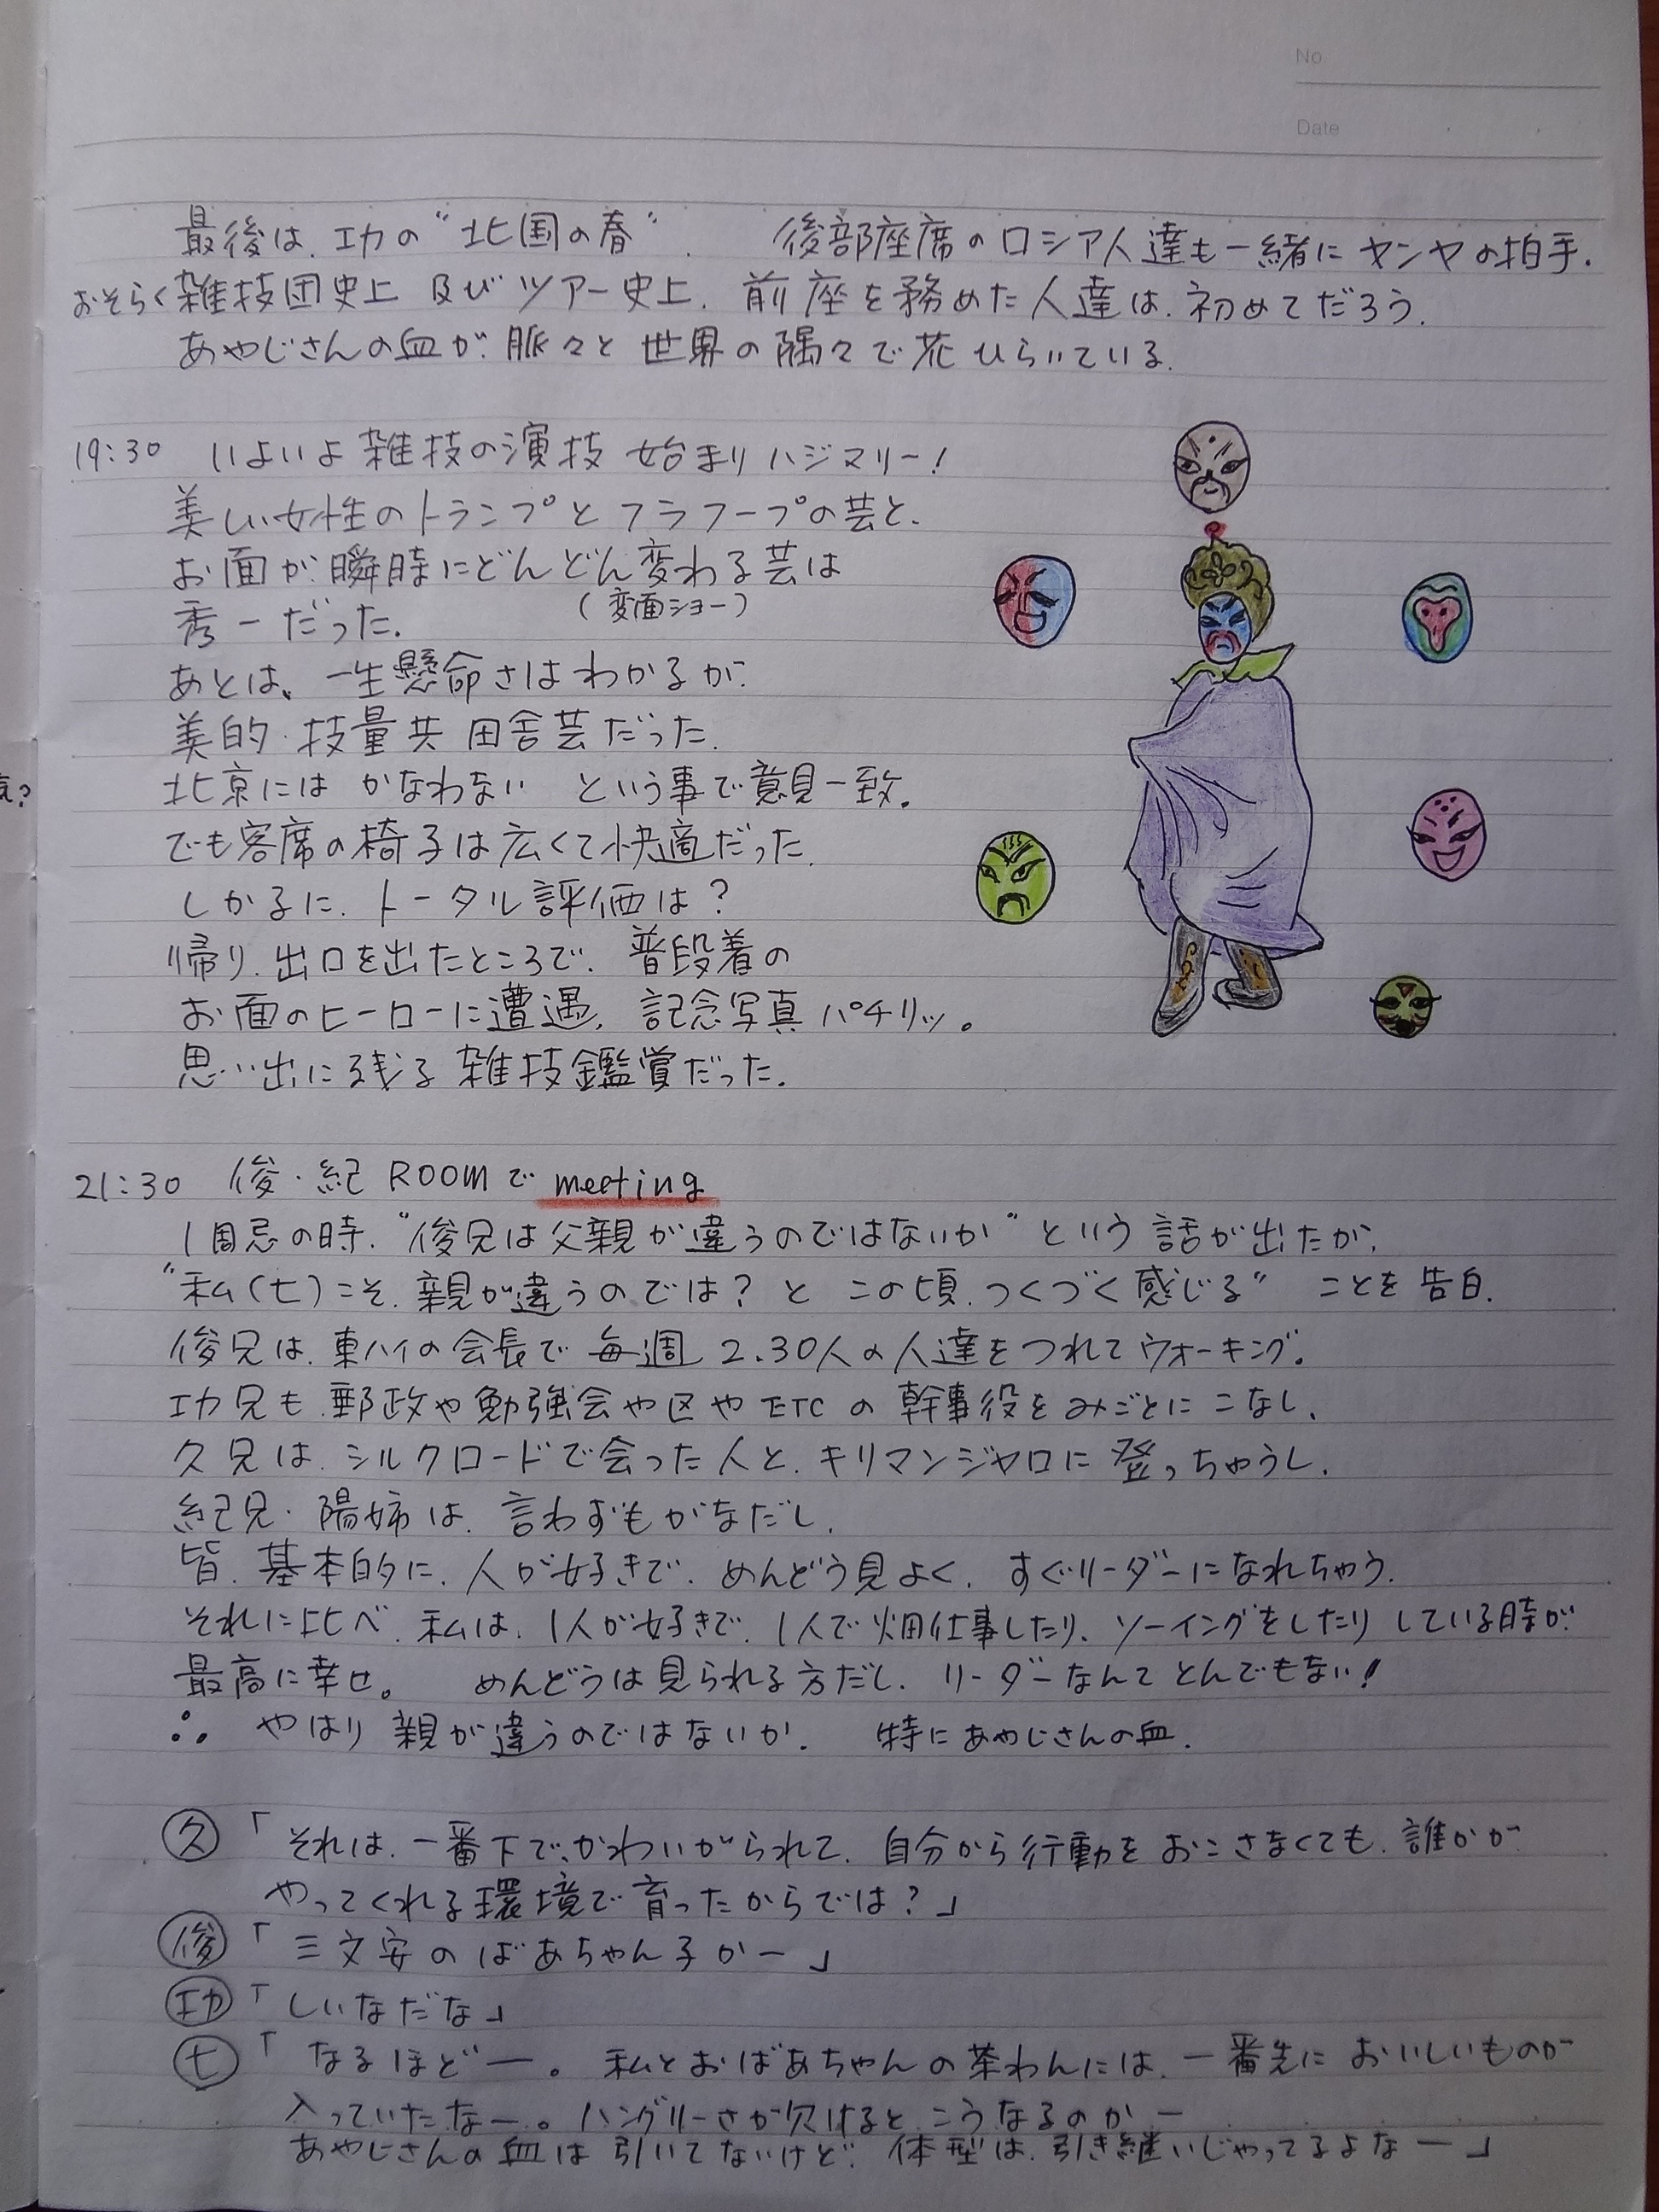 No
Date
最後は、功の“北国の春”. 後部座席のロシア人達も一緒にヤンヤの拍手.
おそらく雑技団史上 及びツアー史上、前座を務めた人達は、初めてだろう.
あやじさんの血が、脈々と世界の隅々で花ひらいている.
19:30 いよいよ雑技の演技 始まりハジマリー!
美しい女性のトランプとフラフープの芸と、
お面が、瞬時にどんどん変わる芸は
(変面ショー)
秀一だった.
あとは、一生懸命さはわかるが、
美的・技量共 田舎芸だった.
北京には かなわない という事で意見一致。
でも客席の椅子は広くて快適だった.
しかるに、トータル評価は?
帰り、出口を出たところで、普段着の
お面のヒーローに遭遇、記念写真パチリッ。
思い出に残る 雑技鑑賞だった.
21:30 俊・紀 ROOMで meeting
1周忌の時、“俊兄は父親が違うのではないか”という話が出たが、
“私(七)こそ、親が違うのでは?と この頃、つくづく感じる”ことを告白.
俊兄は、東ハイの会長で毎週 2、30人の人達をつれてウォーキング。
功兄も、郵政や勉強会や区やETCの幹事役をみごとにこなし、
久兄は、シルクロードで会った人と、キリマンジャロに登っちゃうし、
紀兄・陽姉は、言わずもがなだし、
皆、基本的に、人が好きで、めんどう見よく、すぐリーダーになれちゃう.
それに比べ、私は、1人が好きで、1人で畑仕事したり、ソーイングをしたりしている時が、
最高に幸せ。 めんどうは見られる方だし、リーダーなんてとんでもない!
∴ やはり親が違うのではないか. 特にあやじさんの血.
久「それは、一番下で、かわいがられて、自分から行動をおこさなくても、誰かが
やってくれる環境で育ったからでは?」
俊「三文安のばあちゃん子かー」
功「しいなだな」
七「なるほどー。私とおばあちゃんの茶わんには、一番先においしいものが
入っていたなー。ハングリーさが欠けると、こうなるのかー
あやじさんの血は引いてないけど、体型は、引き継いじゃってるよなー」